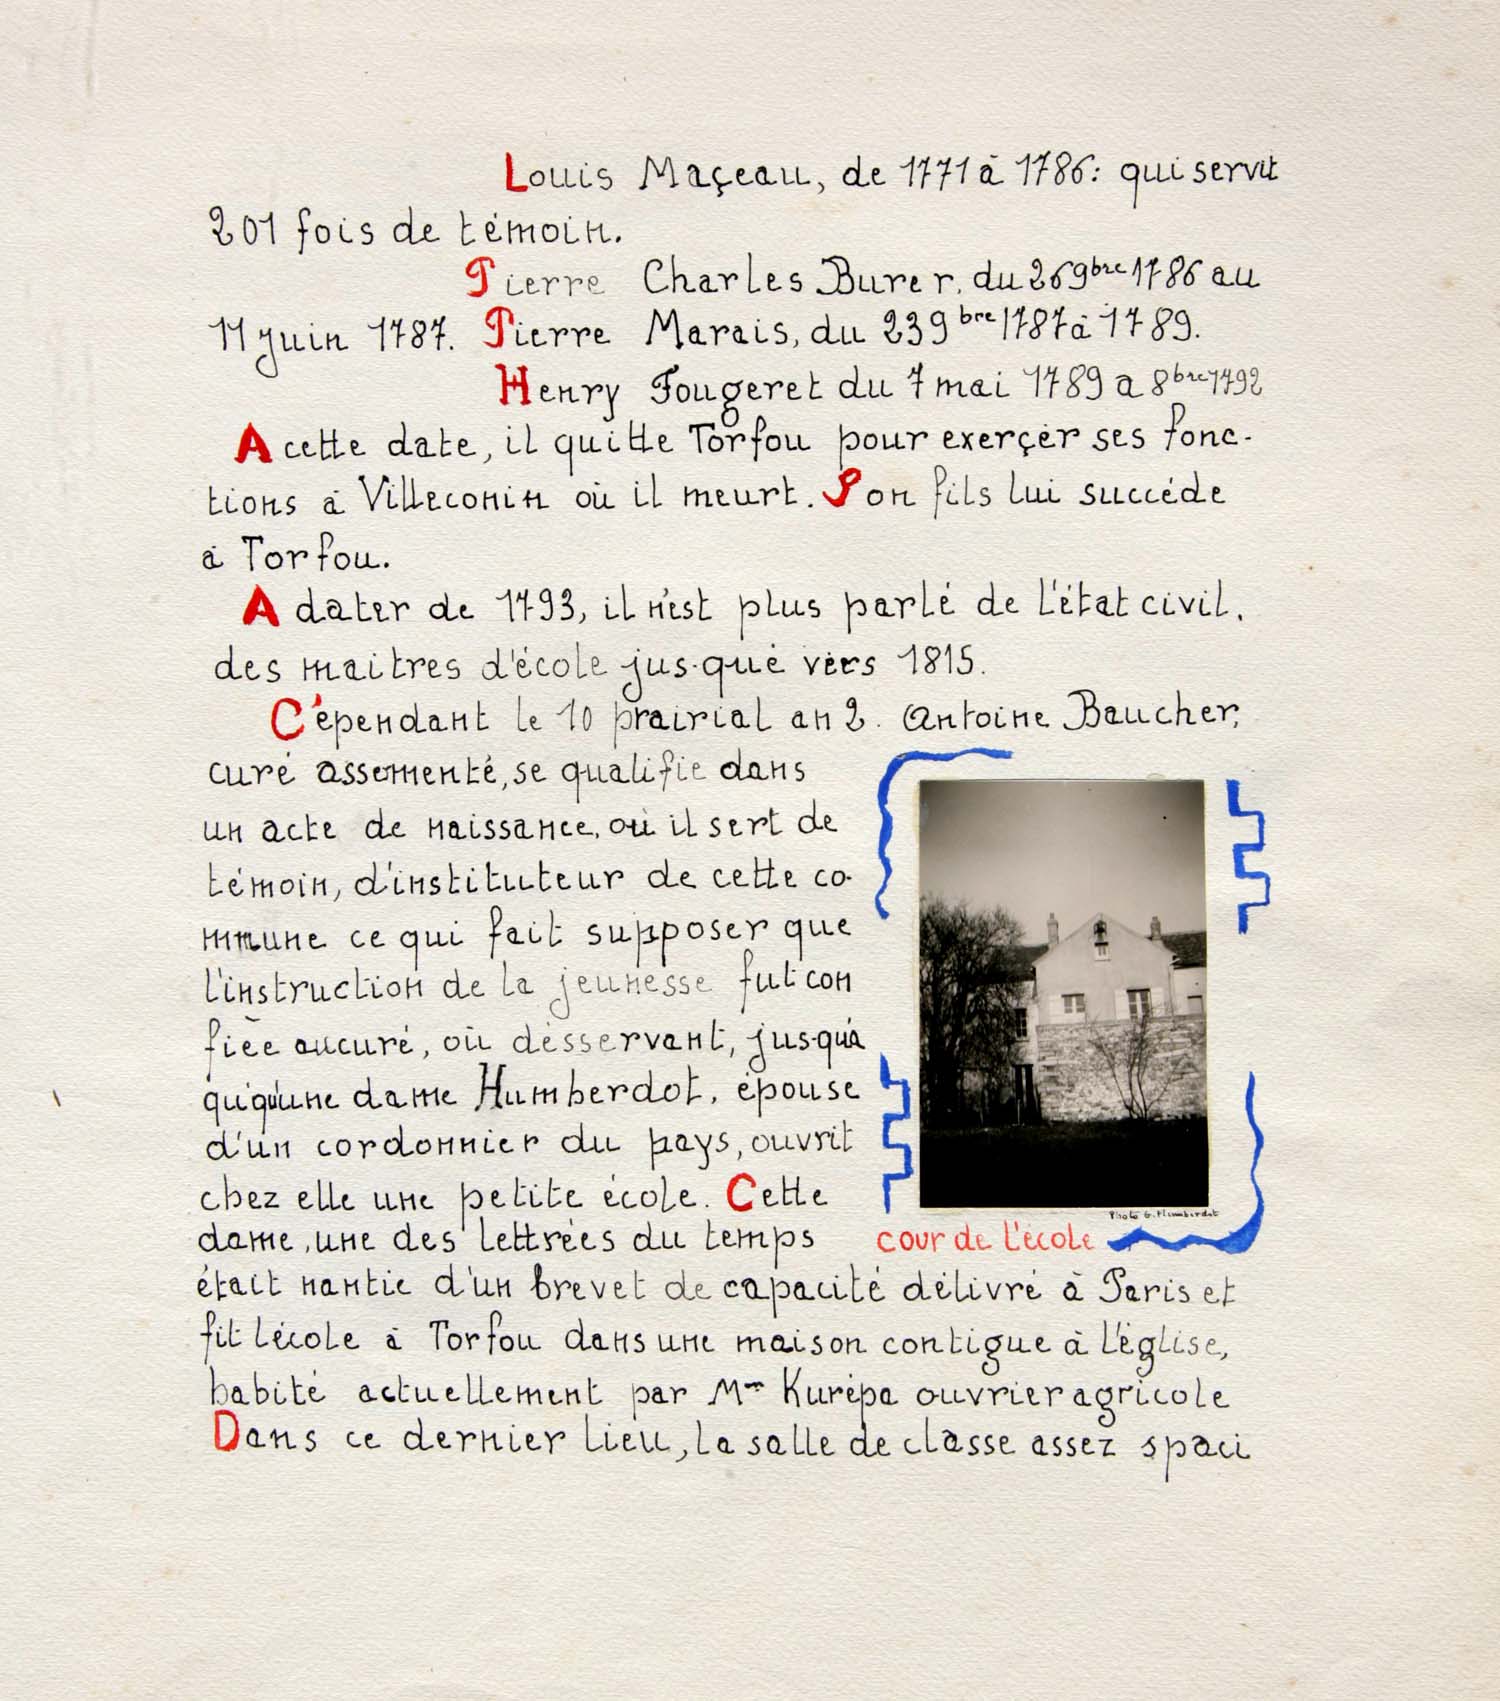 Louis Maçeau, de 1771 à 1786: qui servit
201 fois de témoin.
Pierre Charles Burer. du 26 9bre 1786 au
11 juin 1787. Pierre Marais, du 23 9bre 1787 à 1789.
Henry Fougeret du 7 mai 1789 a 8bre 1792
A cette date, il quitte Torfou pour exerçer ses fonc-
tions à Villeconin où il meurt. Son fils lui succéde
à Torfou.
A dater de 1793, il n'est plus parlé de l'état civil.
des maitres d'école jus-qué vers 1815.
C'épendant le 10 prairial an 2. Antoine Baucher,
curé assementé, se qualifie dans
un acte de naissance, où il sert de
témoin, d'instituteur de cette co-
mmune ce qui fait supposer que
l'instruction de la jeunesse fut con
fiée aucuré, où désservant, jus-qu'à
qu'qu'une dame Humberdot, épouse
d'un cordonnier du pays, ouvrit
chez elle une petite école. Cette
dame, une des lettrées du temps
était nantie d'un brevet de capacité délivré à Paris et
fit lécole à Torfou dans une maison contigue à l'église,
habité actuellement par Mr Kurépa ouvrier agricole
Dans ce dernier lieu, la salle de classe assez spaci
Photo G. Humberdot
cour de l'école